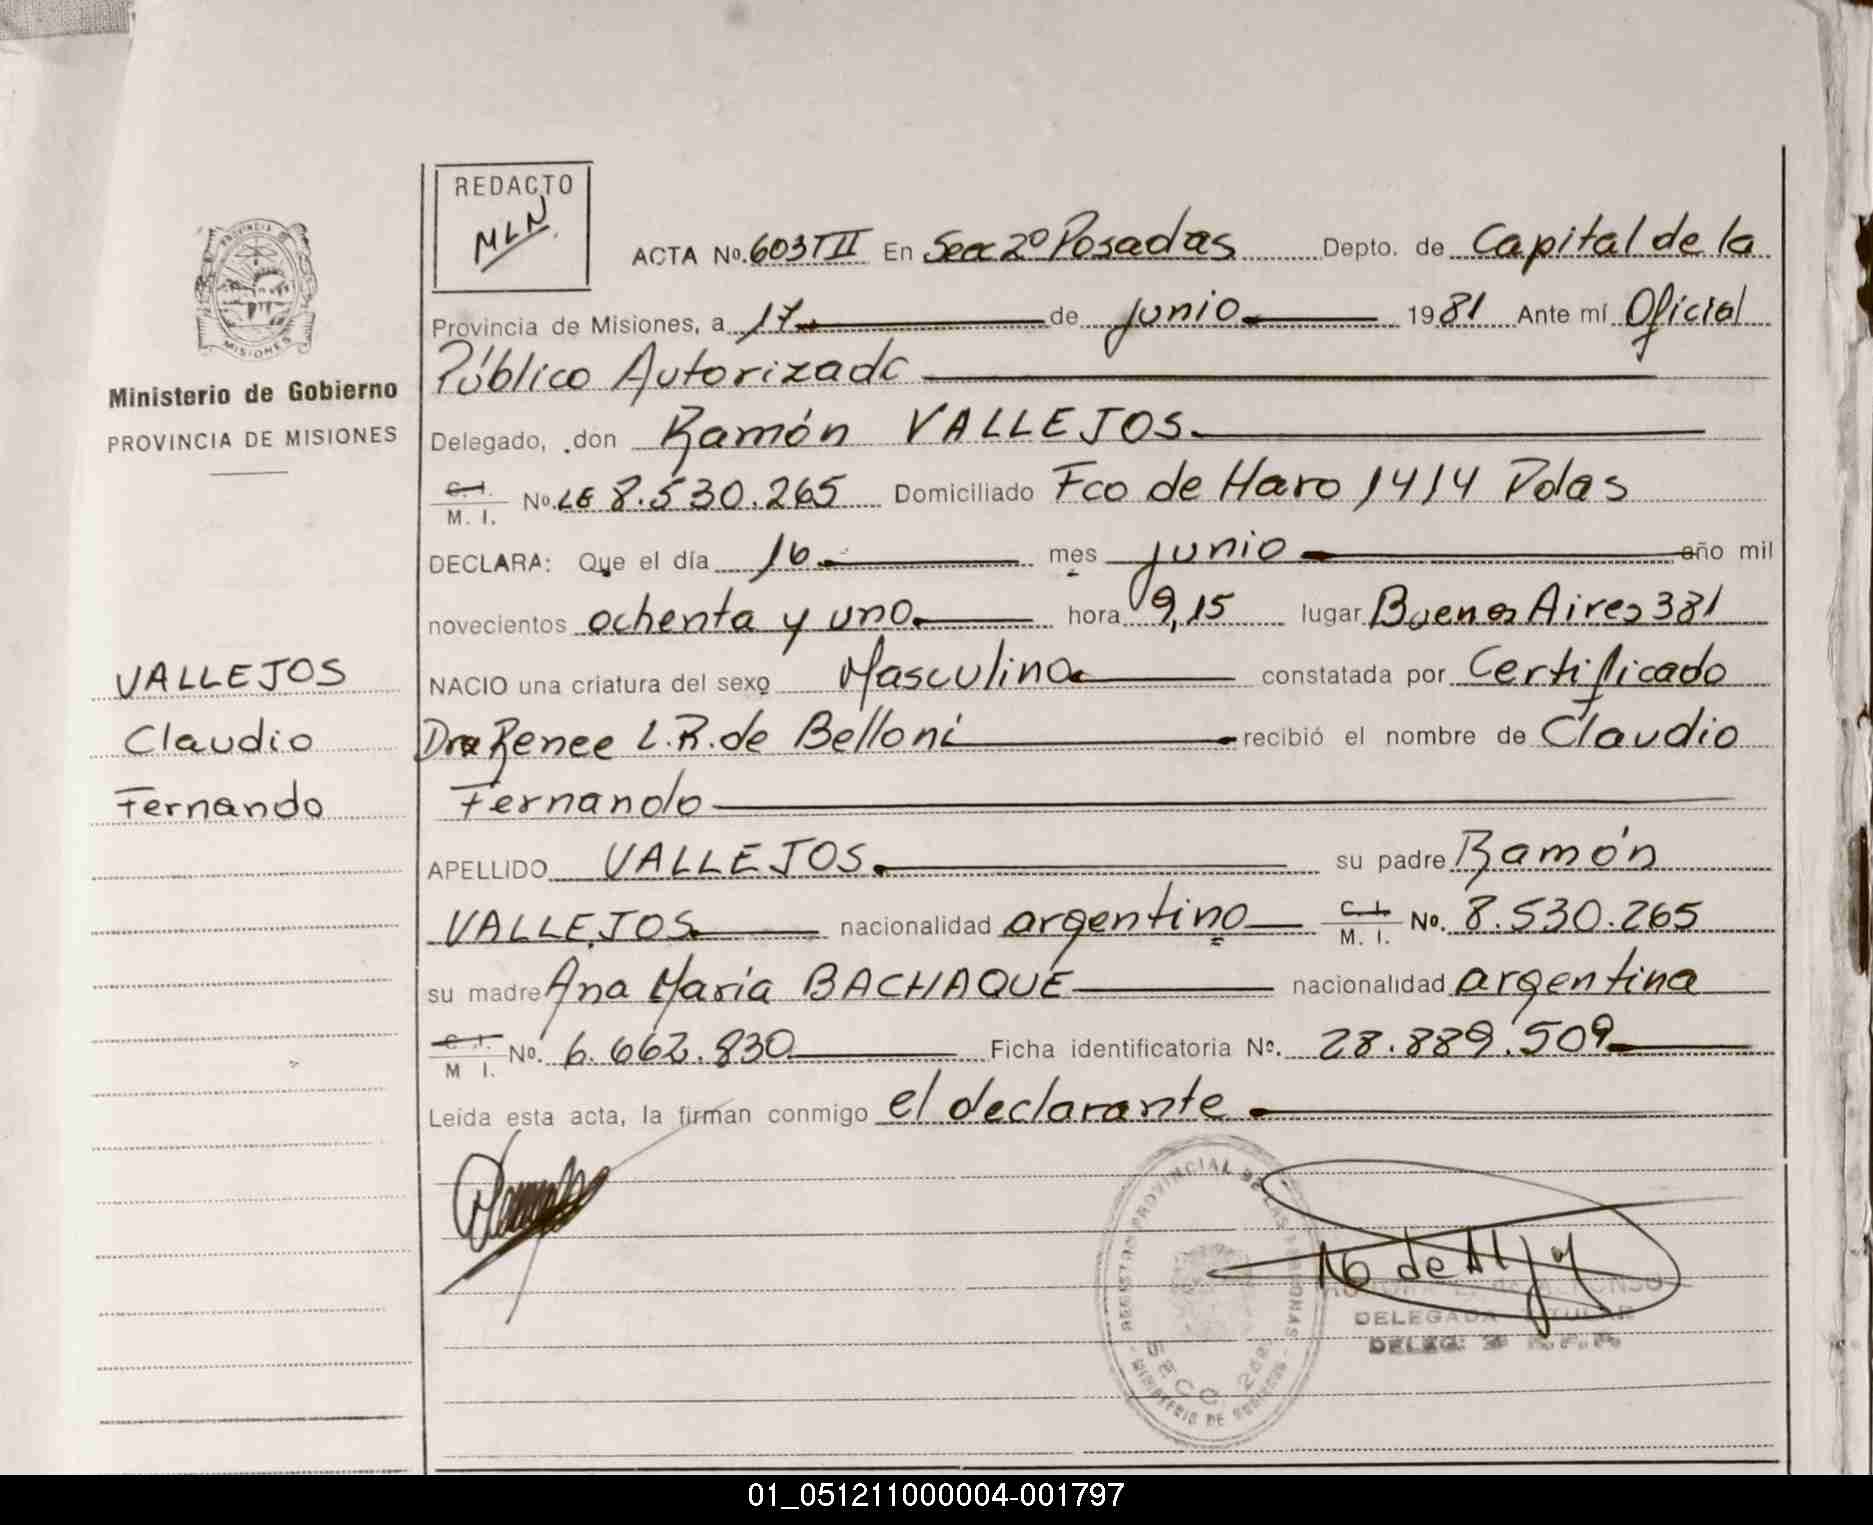 REDACTO
MLN.
PROVINCIA DE
MISIONES
ACTA No. 603 T II En Secc 2º Posadas Depto. de Capital de la
Provincia de Misiones, a 17 de junio 1981 Ante mí Oficial
Ministerio de Gobierno
PROVINCIA DE MISIONES
Público Autorizado
Delegado, don Ramón VALLEJOS.
C. I. / M. I. No. LE 8.530.265 Domiciliado Fco de Haro 1414 Pdas
DECLARA: Que el día 16 mes junio año mil
novecientos ochenta y uno hora 9,15 lugar Buenos Aires 381
VALLEJOS
Claudio
Fernando
NACIO una criatura del sexo Masculino constatada por Certificado
Dra Renee L.R. de Belloni recibió el nombre de Claudio
Fernando
APELLIDO VALLEJOS. su padre Ramón
VALLEJOS nacionalidad argentino C. I. / M. I. No. 8.530.265
su madre Ana María BACHAQUÉ nacionalidad argentina
C. I. / M. I. No. 6.662.830 Ficha identificatoria No. 28.889.509
Leída esta acta, la firman conmigo el declarante
REGISTRO PROVINCIAL DE LAS PERSONAS
MINISTERIO DE GOBIERNO
DELEGADA TITULAR
DELEG.
01_051211000004-001797